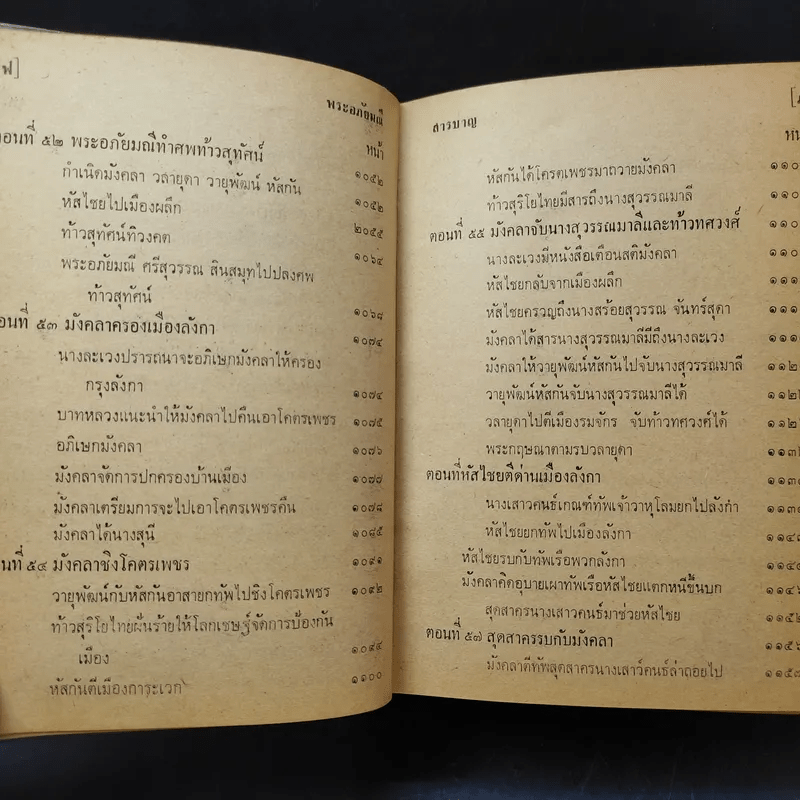 ฟ]
พระอภัยมณี
หน้า
อนที่ ๕๒ พระอภัยมณีทำศพท้าวสุทัศน์ ๑๐๕๒
กำเนิดมังคลา วลายุดา วายุพัฒน์ หัสกัน ๑๐๕๒
หัสไชยไปเมืองผลึก ๒๐๕๕
ท้าวสุทัศน์ทิวงคต ๑๐๖๔
พระอภัยมณี ศรีสุวรรณ สินสมุทไปปลงศพ
ท้าวสุทัศน์ ๑๐๖๘
อนที่ ๕๓ มังคลาครองเมืองลังกา ๑๐๗๔
นางละเวงปรารถนาจะอภิเษกมังคลาให้ครอง
กรุงลังกา ๑๐๗๔
บาทหลวงแนะนำให้มังคลาไปคืนเอาโคตรเพชร ๑๐๗๕
อภิเษกมังคลา ๑๐๗๖
มังคลาจัดการปกครองบ้านเมือง ๑๐๗๘
มังคลาเตรียมการจะไปเอาโคตรเพชรคืน ๑๐๗๘
มังคลาได้นางสุนี ๑๐๘๕
นที่ ๕๔ มังคลาชิงโคตรเพชร ๑๐๙๑
วายุพัฒน์กับหัสกันอาสายกทัพไปชิงโคตรเพชร ๑๐๙๒
ท้าวสุริโยไทยฝันร้ายให้โลกเชษฐ์จัดการป้องกัน
เมือง ๑๐๙๔
หัสกันตีเมืองการะเวก ๑๑๐๐
สารบาญ
หัสกันได้โครตเพชรมาถวายมังคลา ๑๑๐
ท้าวสุริโยไทยมีสารถึงนางสุวรรณมาลี ๑๑๐
ตอนที่ ๕๕ มังคลาจับนางสุวรรณมาลีและท้าวทศวงศ์ ๑๑๐
นางละเวงมีหนังสือเตือนสติมังคลา ๑๑๐
หัสไชยกลับจากเมืองผลึก ๑๑๑
หัสไชยครวญถึงนางสร้อยสุวรรณ จันทร์สุดา ๑๑๑
มังคลาได้สารนางสุวรรณมาลีมีถึงนางละเวง ๑๑๑
มังคลาให้วายุพัฒน์หัสกันไปจับนางสุวรรณมาลี ๑๑๒
วายุพัฒน์หัสกันจับนางสุวรรณมาลีได้ ๑๑๒
วลายุดาไปตีเมืองรมจักร จับท้าวทศวงศ์ได้ ๑๑๒
พระกฤษณาตามรบวลายุดา ๑๑๓
ตอนที่หัสไชยตีด่านเมืองลังกา ๑๑๓
นางเสาวคนธ์เกณฑ์ทัพเจ้าวาหุโลมยกไปลังกำา ๑๑๓
หัสไชยยกทัพไปเมืองลังกา ๑๑๔
หัสไชยรบกับทัพเรือพวกลังกา ๑๑๔
มังคลาคิดอุบายเผาทัพเรือหัสไชยแตกหนีขึ้นบก ๑๑๔
สุดสาครนางเสาวคนธ์มาช่วยหัสไชย ๑๑๕
ตอนที่ ๕๗ สุดสาครรบกับมังคลา ๑๑๕
มังคลาตีทัพสุดสาครนางเสาว์คนธ์ล่าถอยไป ๑๑๕